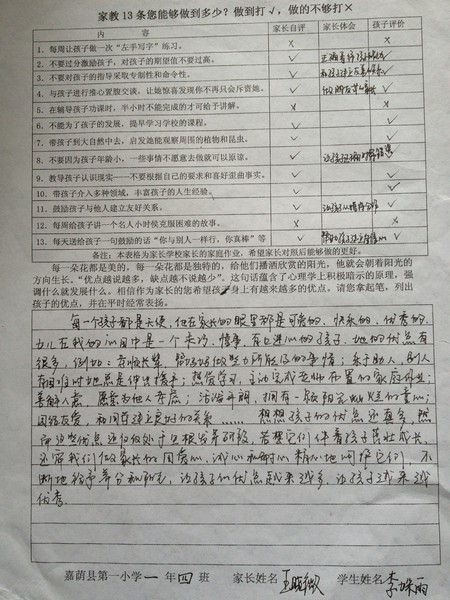 家教13条您能够做到多少？做到打√，做的不够打×
内 容 家长自评 家长体会 孩子评价
1．每周让孩子做一次“左手写字”练习。 × ×
2．不要过分激励孩子，对孩子的期望值不要过高。 √ √
3．不要对孩子的指导采取专制性和命令性。 √ √
4．与孩子进行推心置腹交谈，让她惊喜发现你不再只会斥责她。 √ √
5．在辅导孩子功课时，半小时不能完成的才可给予讲解。 × ×
6．不能为了孩子的发展，提早学习学校的课程。 √ √
7．带孩子到大自然中去，启发她能观察周围的植物和昆虫。 √ √
8．不要因为孩子年龄小，一些事情不愿意去做就可以原谅。 √
9．教导孩子认识现实——不要根据自己的要求和喜好歪曲事实。 √ √
10．带孩子介入多种领域，丰富孩子的人生经验。 √ √
11．鼓励孩子与他人建立友好关系。 √ √
12．每周给孩子讲一个名人小时候克服困难的故事。 × ×
13．每天送给孩子一句鼓励的话“你与别人一样行，你真棒”等 √ √
备注：本表格为家长学校家长的家庭作业，希望家长对照后能够做的更好。
每一朵花都是美的，每一朵花都是独特的，给他们播洒欣赏的阳光，他就会朝着阳光的
方向生长。“优点越说越多，缺点越不说越少”。这句话蕴含了心理学上积极暗示的原理，强
调什么就发展什么。相信作为家长的您希望孩子身上有越来越多的优点。请您拿起笔，列出
孩子的优点，并在平时经常表扬。
每一个孩子都是天使，但在家长的眼里都是可爱的，快乐的，优秀的。
女儿在我的心目中是一个乖巧，懂事，有上进心的孩子，她的优点有
很多，例如：孝顺长辈，帮妈妈做些力所能及的事情；乐于助人，别人
有困难时她总是伸出援手；热爱学习，主动完成老师布置的家庭作业；
善解人意，愿意为他人考虑；活泼开朗，拥有一颗阳光灿烂的童心；
团结友爱，和同学建立良好的关系……想想孩子们的优点还真多，然
而这些优点还仅仅处于生根发芽阶段，若想它们伴着孩子茁壮成长，
还需我们做家长的用爱心，诚心和耐心精心地呵护它们，不
断地给予养分和阳光，让孩子们优点越来越多，让孩子越来越
优秀。
嘉荫县第一小学一年四班 家长姓名 王晓微 学生姓名 李姝雨